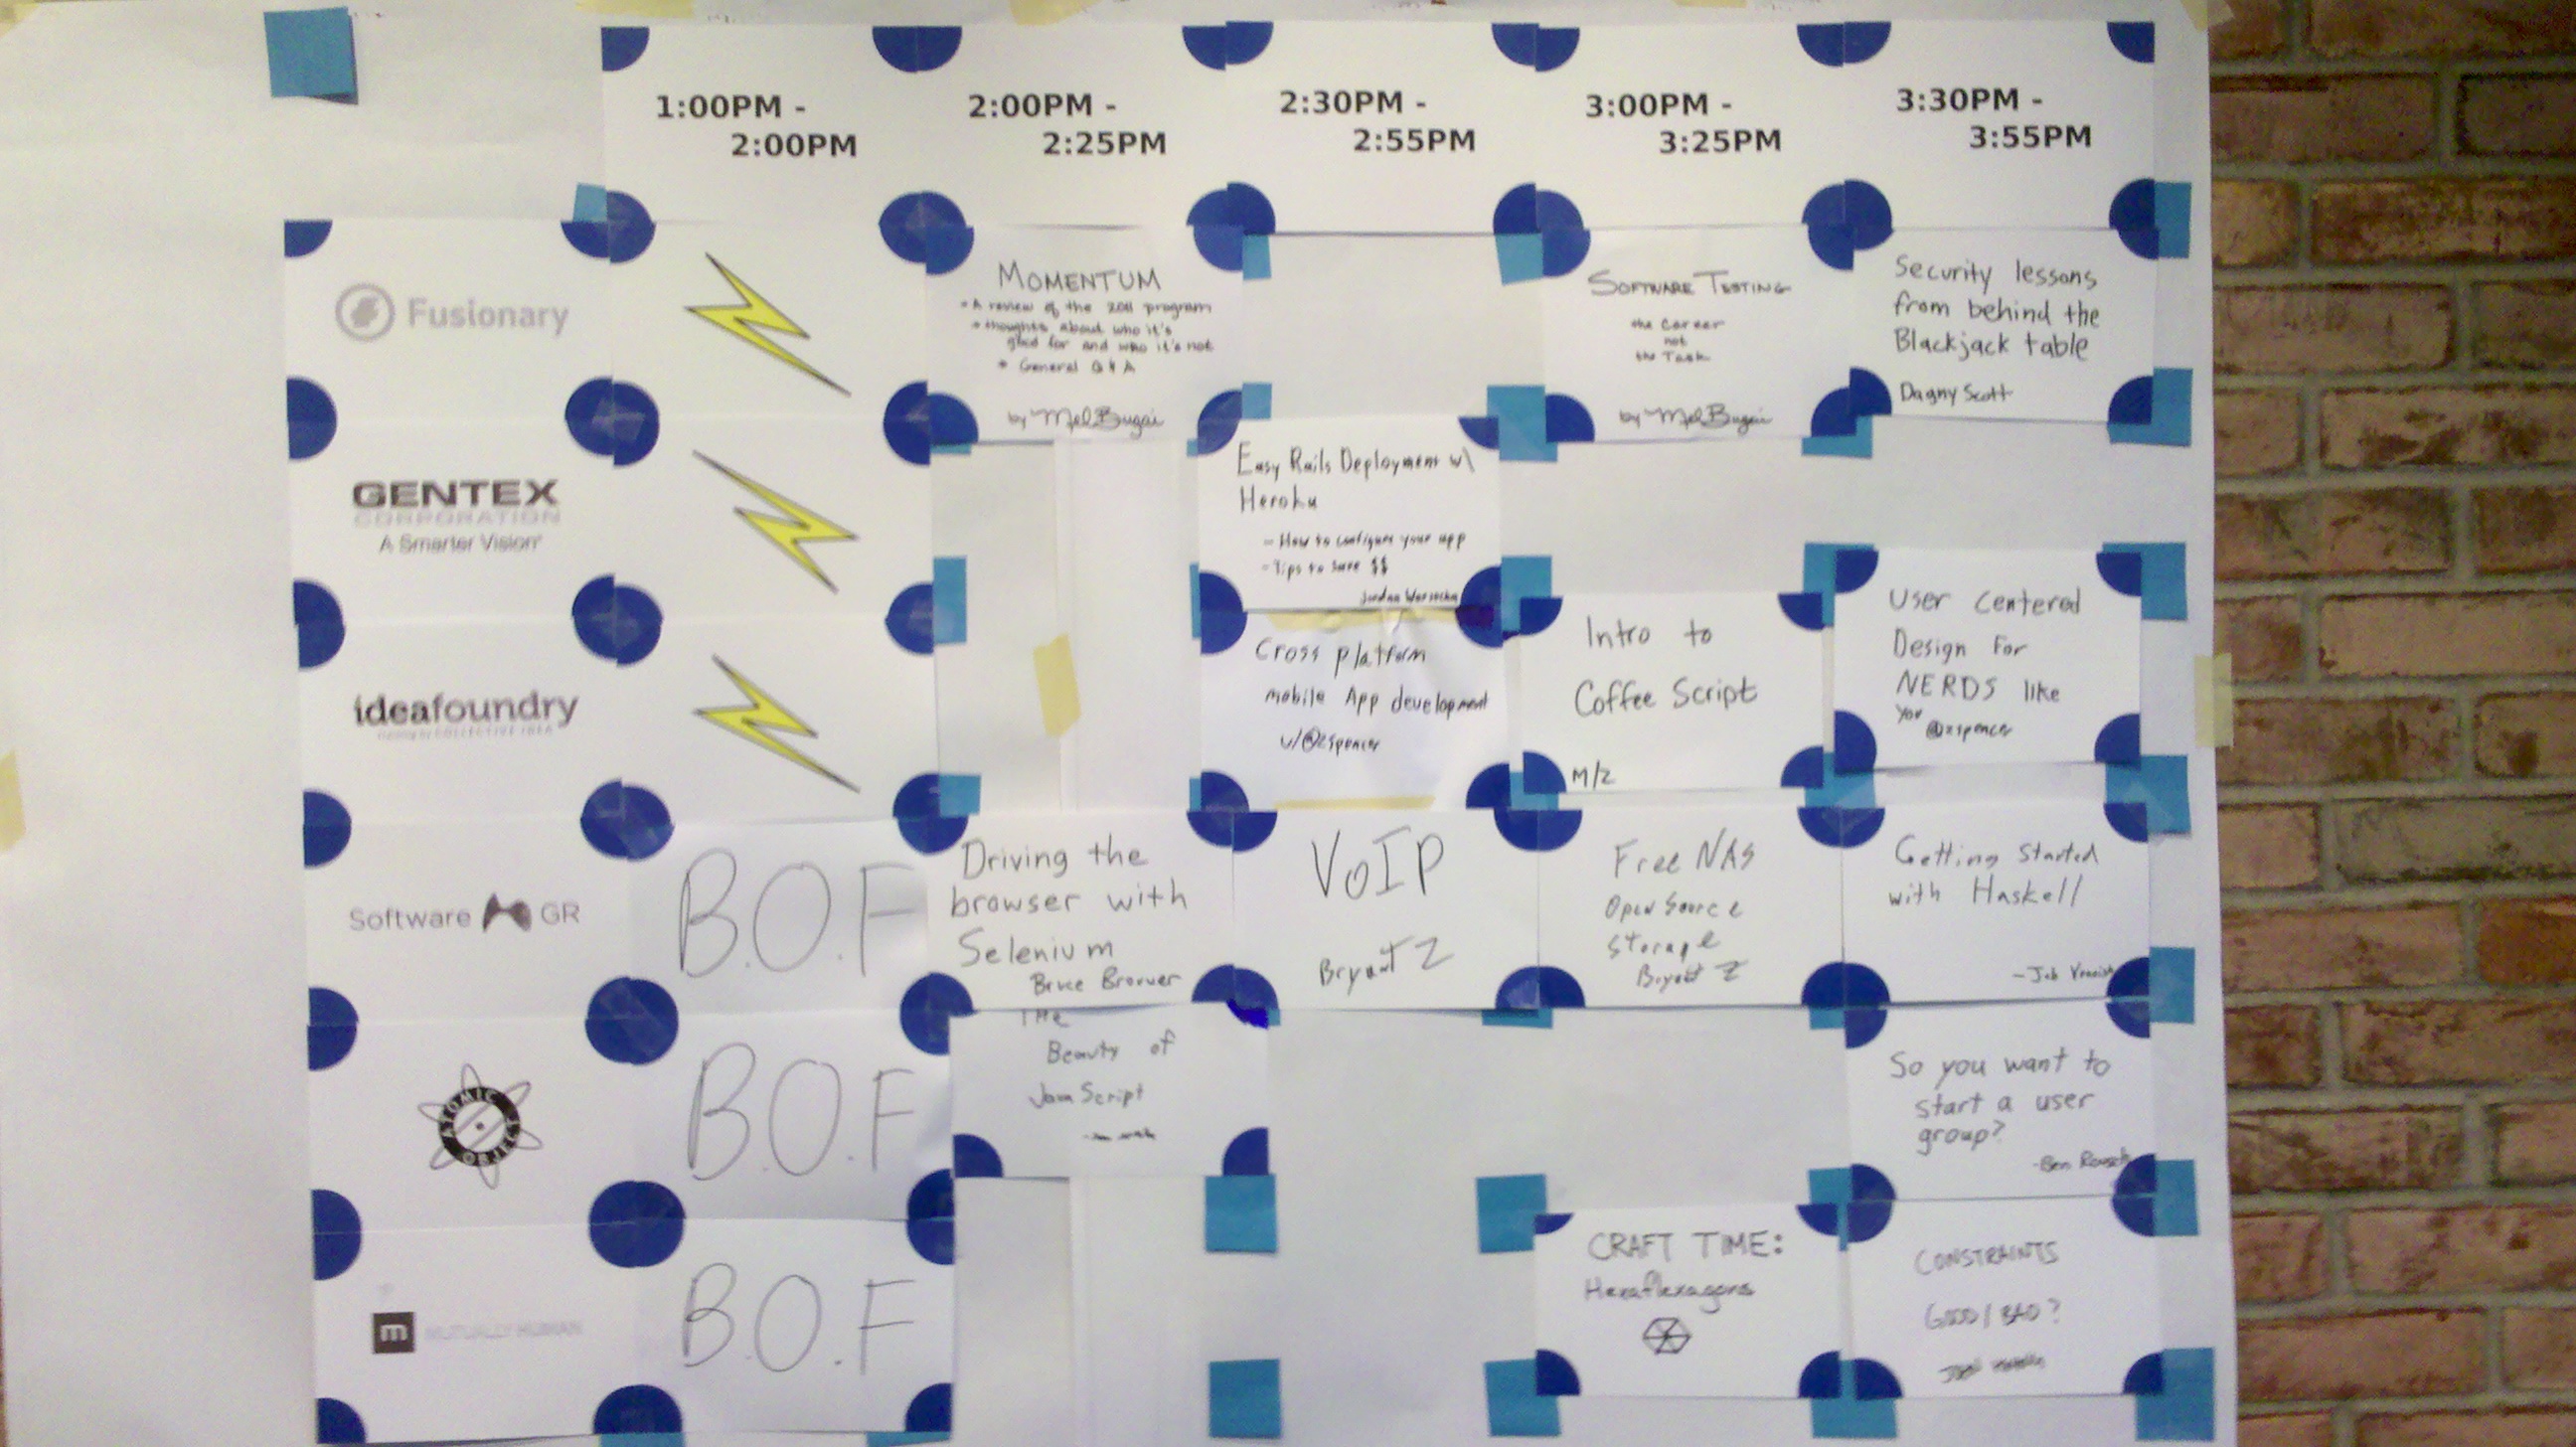 1:00PM -
2:00PM
2:00PM -
2:25PM
2:30PM -
2:55PM
3:00PM -
3:25PM
3:30PM -
3:55PM
Fusionary
MOMENTUM
* A review of the 2011 program
* thoughts about who it's
good for and who it's not
* General Q & A
by Mel Bugai
SOFTWARE TESTING
the Career
not
the Task
by Mel Bugai
Security lessons
from behind the
Blackjack table
Dagny Scott
GENTEX
CORPORATION
A Smarter Vision
Easy Rails Deployment w\
Heroku
- How to configure your app
- Tips to save $$
Jordan
ideafoundry
Cross platform
mobile App development
w/@zspencer
Intro to
Coffee Script
M/Z
User Centered
Design For
NERDS like
You
@zspencer
Software GR
B.O.F
Driving the
browser with
Selenium
Bruce Brouwer
VoIP
Bryant Z
Free NAS
Open Source
Storage
Bryant Z
Getting Started
with Haskell
- Job
ATOMIC
OBJECT
B.O.F
The
Beauty of
JavaScript
So you want to
start a user
group?
-Ben
m MUTUALLY HUMAN
B.O.F
CRAFT TIME:
Hexaflexagons
CONSTRAINTS
GOOD / BAD?